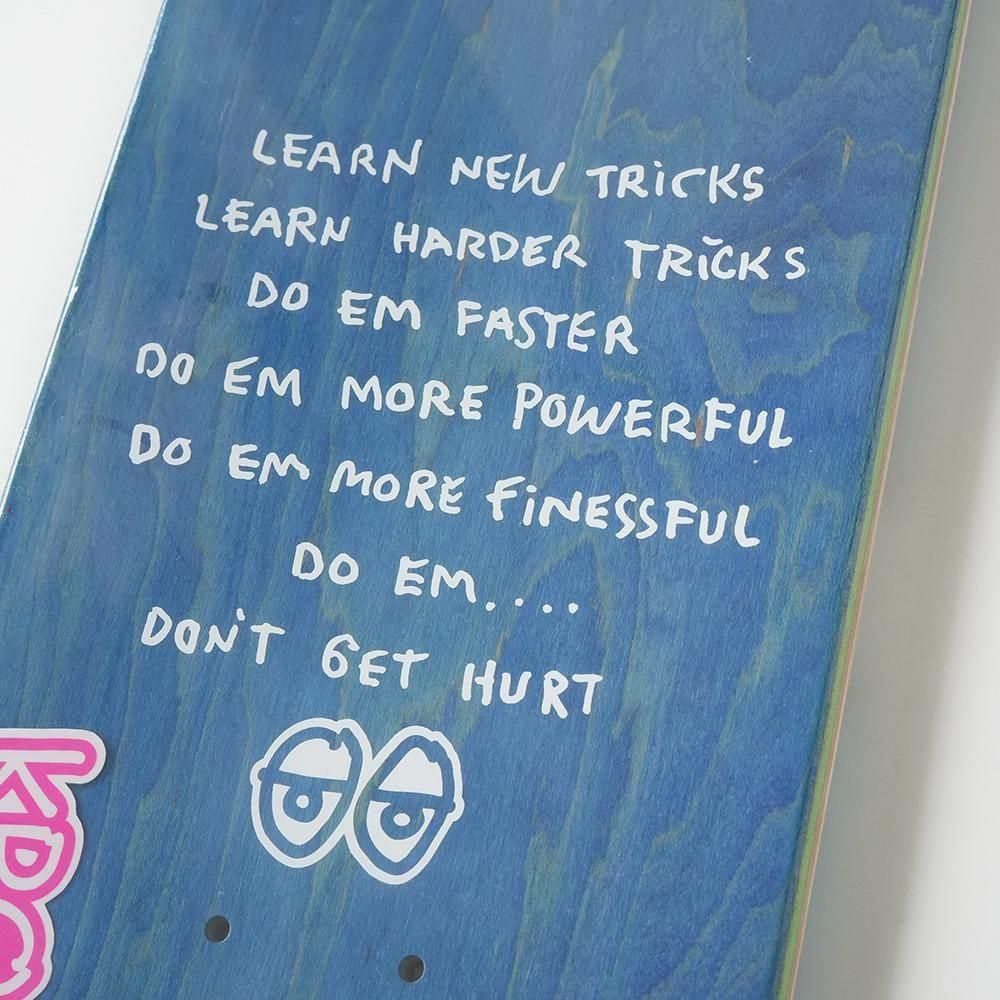 LEARN NEW TRiCKS
LEARN HARDER TRiCKS
DO EM FASTER
DO EM MORE POWERFUL
DO EM MORE FiNESSFUL
DO EM....
DON'T GET HURT